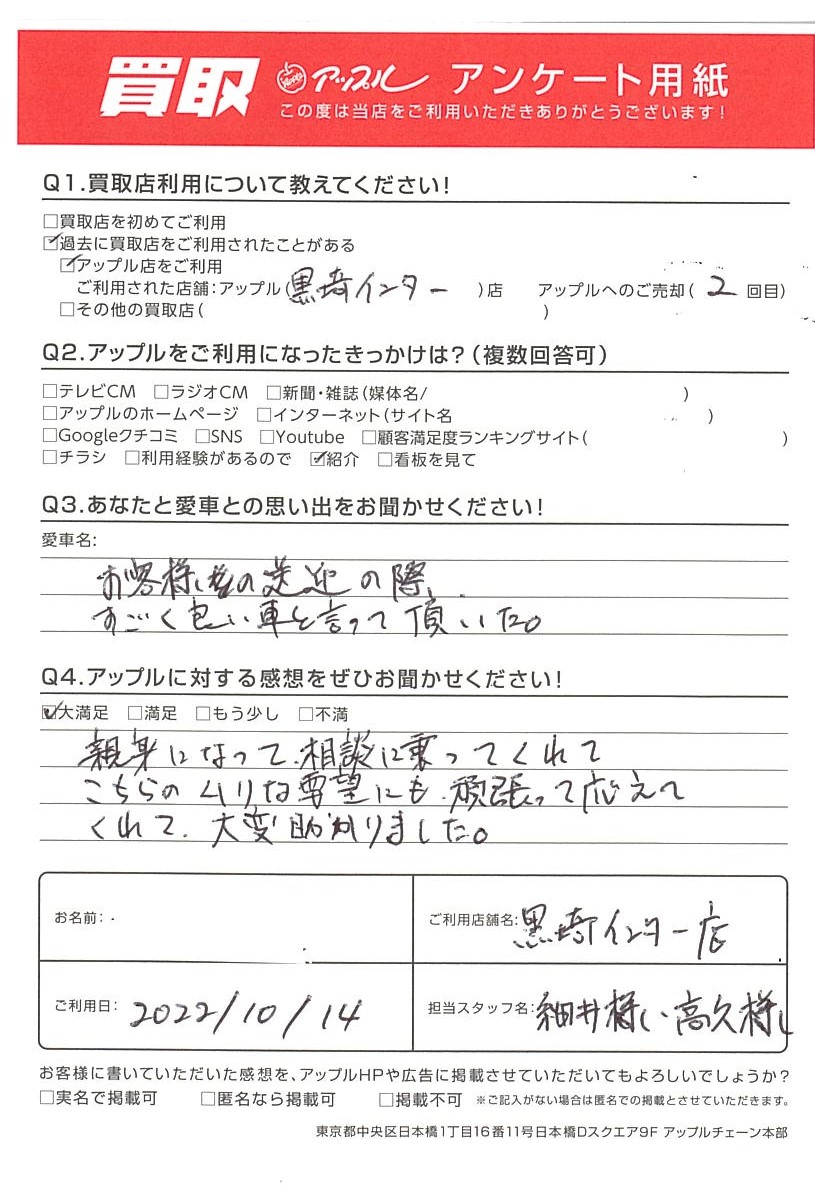 買取 アップル アンケート用紙
この度は当店をご利用いただきありがとうございます!
Q1.買取店利用について教えてください!
□買取店を初めてご利用
☑過去に買取店をご利用されたことがある
☑アップル店をご利用
ご利用された店舗:アップル(黒埼インター )店 アップルへのご売却( 2 回目)
□その他の買取店( )
Q2.アップルをご利用になったきっかけは?(複数回答可)
□テレビCM □ラジオCM □新聞・雑誌(媒体名/ )
□アップルのホームページ □インターネット(サイト名 )
□Googleクチコミ □SNS □Youtube □顧客満足度ランキングサイト( )
□チラシ □利用経験があるので ☑紹介 □看板を見て
Q3.あなたと愛車との思い出をお聞かせください!
愛車名:
お客様の送迎の際、
すごく良い車と言って頂いた。
Q4.アップルに対する感想をぜひお聞かせください!
☑大満足 □満足 □もう少し □不満
親身になって、相談に乗ってくれて
こちらのムリな要望にも、頑張って応えて
くれて、大変助かりました。
お名前:
ご利用店舗名:黒埼インター店
ご利用日: 2022/10/14
担当スタッフ名:細井様、高久様
お客様に書いていただいた感想を、アップルHPや広告に掲載させていただいてもよろしいでしょうか?
□実名で掲載可 □匿名なら掲載可 □掲載不可 ※ご記入がない場合は匿名での掲載とさせていただきます。
東京都中央区日本橋1丁目16番11号日本橋Dスクエア9F アップルチェーン本部